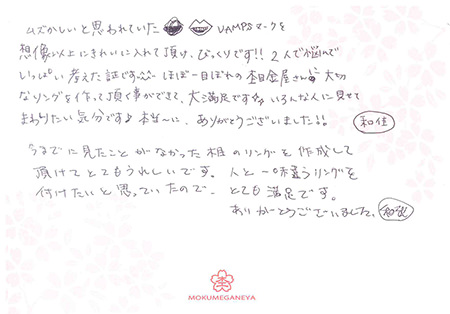 ムズかしいと思われていた VAMPSマークを
想像以上にきれいに入れて頂け、びっくりです!! 2人で悩んで
いっぱい考えた証です^^ ほぼ一目ぼれの杢目金屋さんで 大切
なリングを作って頂く事ができて、大満足です いろんな人に見せて
まわりたい気分です♪ 本当〜に、ありがとうございました!!
和佳
今までに見たことがなかった様のリングを作成して
頂けてとてもうれしいです。人と一味違うリングを
付けたいと思っていたので、とても満足です。
ありがとうございました。
MOKUMEGANEYA